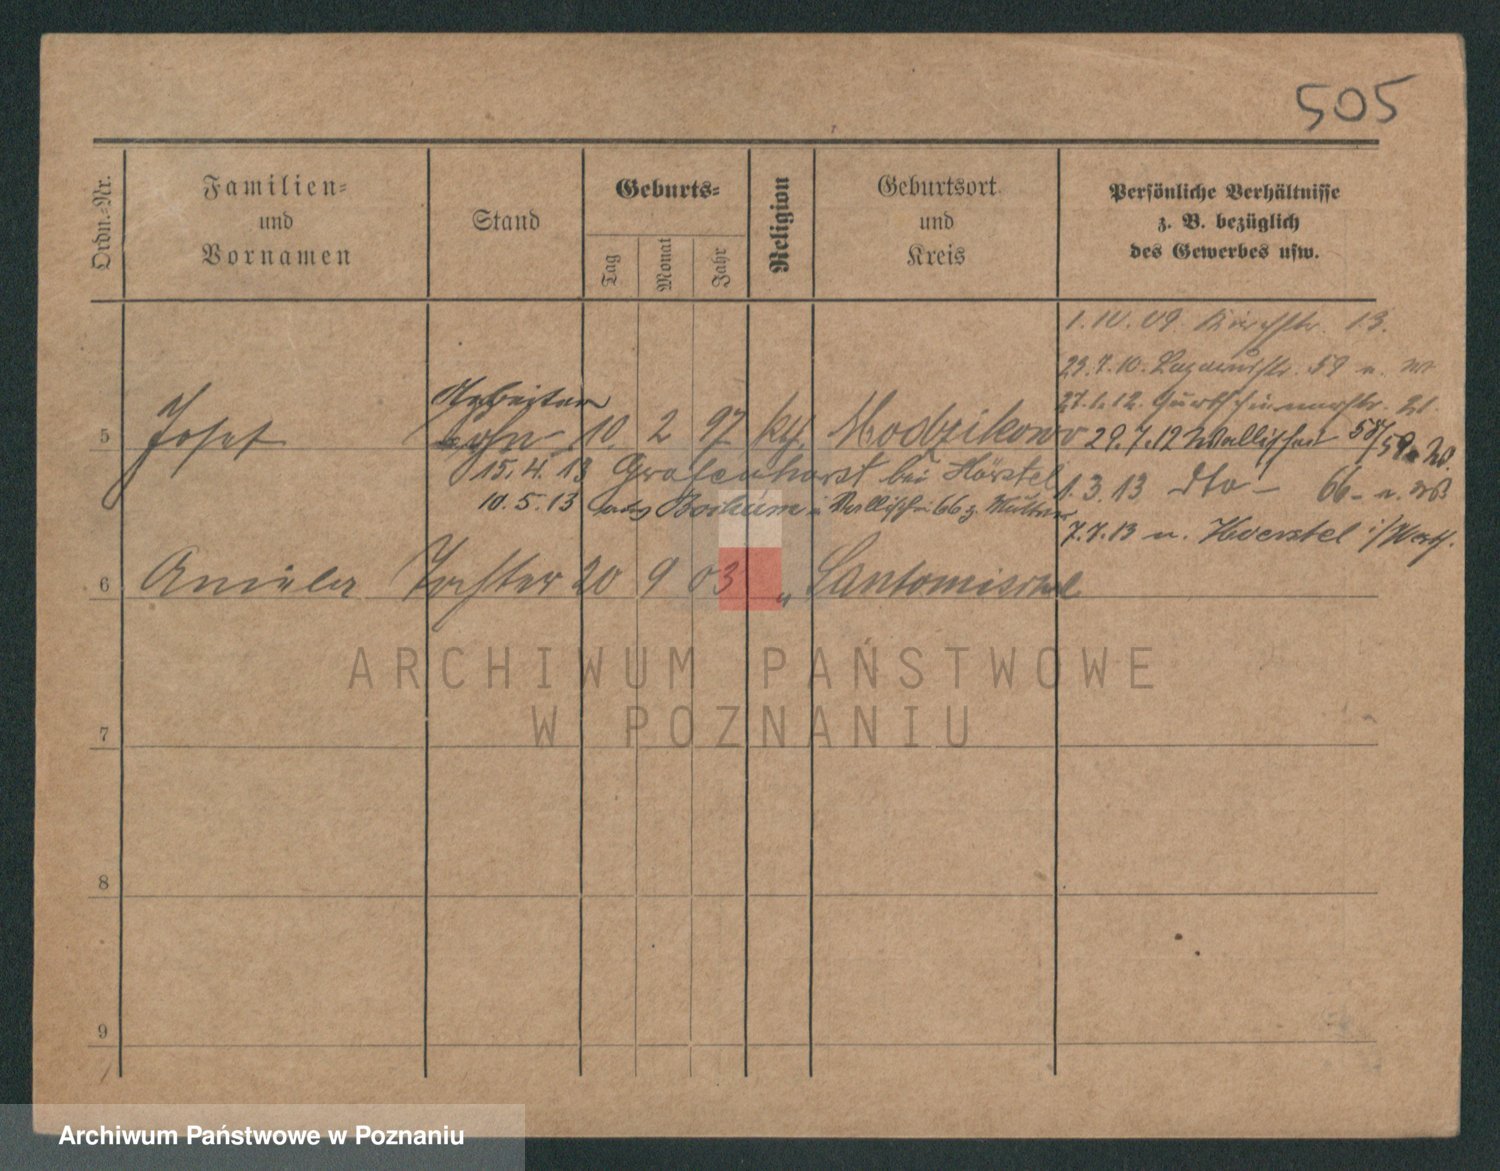 505
Ordn.-Nr.
Familien-
und
Vornamen
Stand
Geburts-
Tag
Monat
Jahr
Religion
Geburtsort
und
Kreis
Persönliche Verhältnisse
z. B. bezüglich
des Gewerbes usw.
1.10.09. 13.
23.7.10. 59
27.1.12.
Arbeiter
5 Josef Sohn 10. 2 97 kth. Modzikowo 29.7.12 Wallischei 58/59
15.4.13 Grafenhorst bei Hörstel
1.3.13 dto - 66
10.5.13 nach Bochum Wallischei 66 z. Mutter
7.7.13 n. Hoerstel i/Westf.
6 Aniela Tochter 20 9 03 " Santomischel
ARCHIWUM PAŃSTWOWE
W POZNANIU
7
8
9
Archiwum Państwowe w Poznaniu